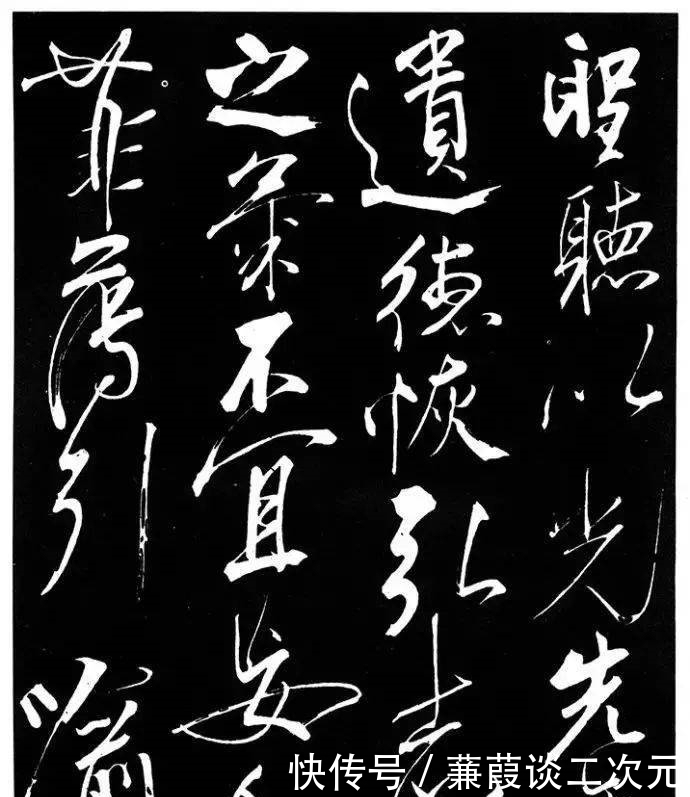 聖聽以光先
遺德恢弘志
之氣不宜妄
菲薄引喻
快传号 / 蒹葭谈二次元